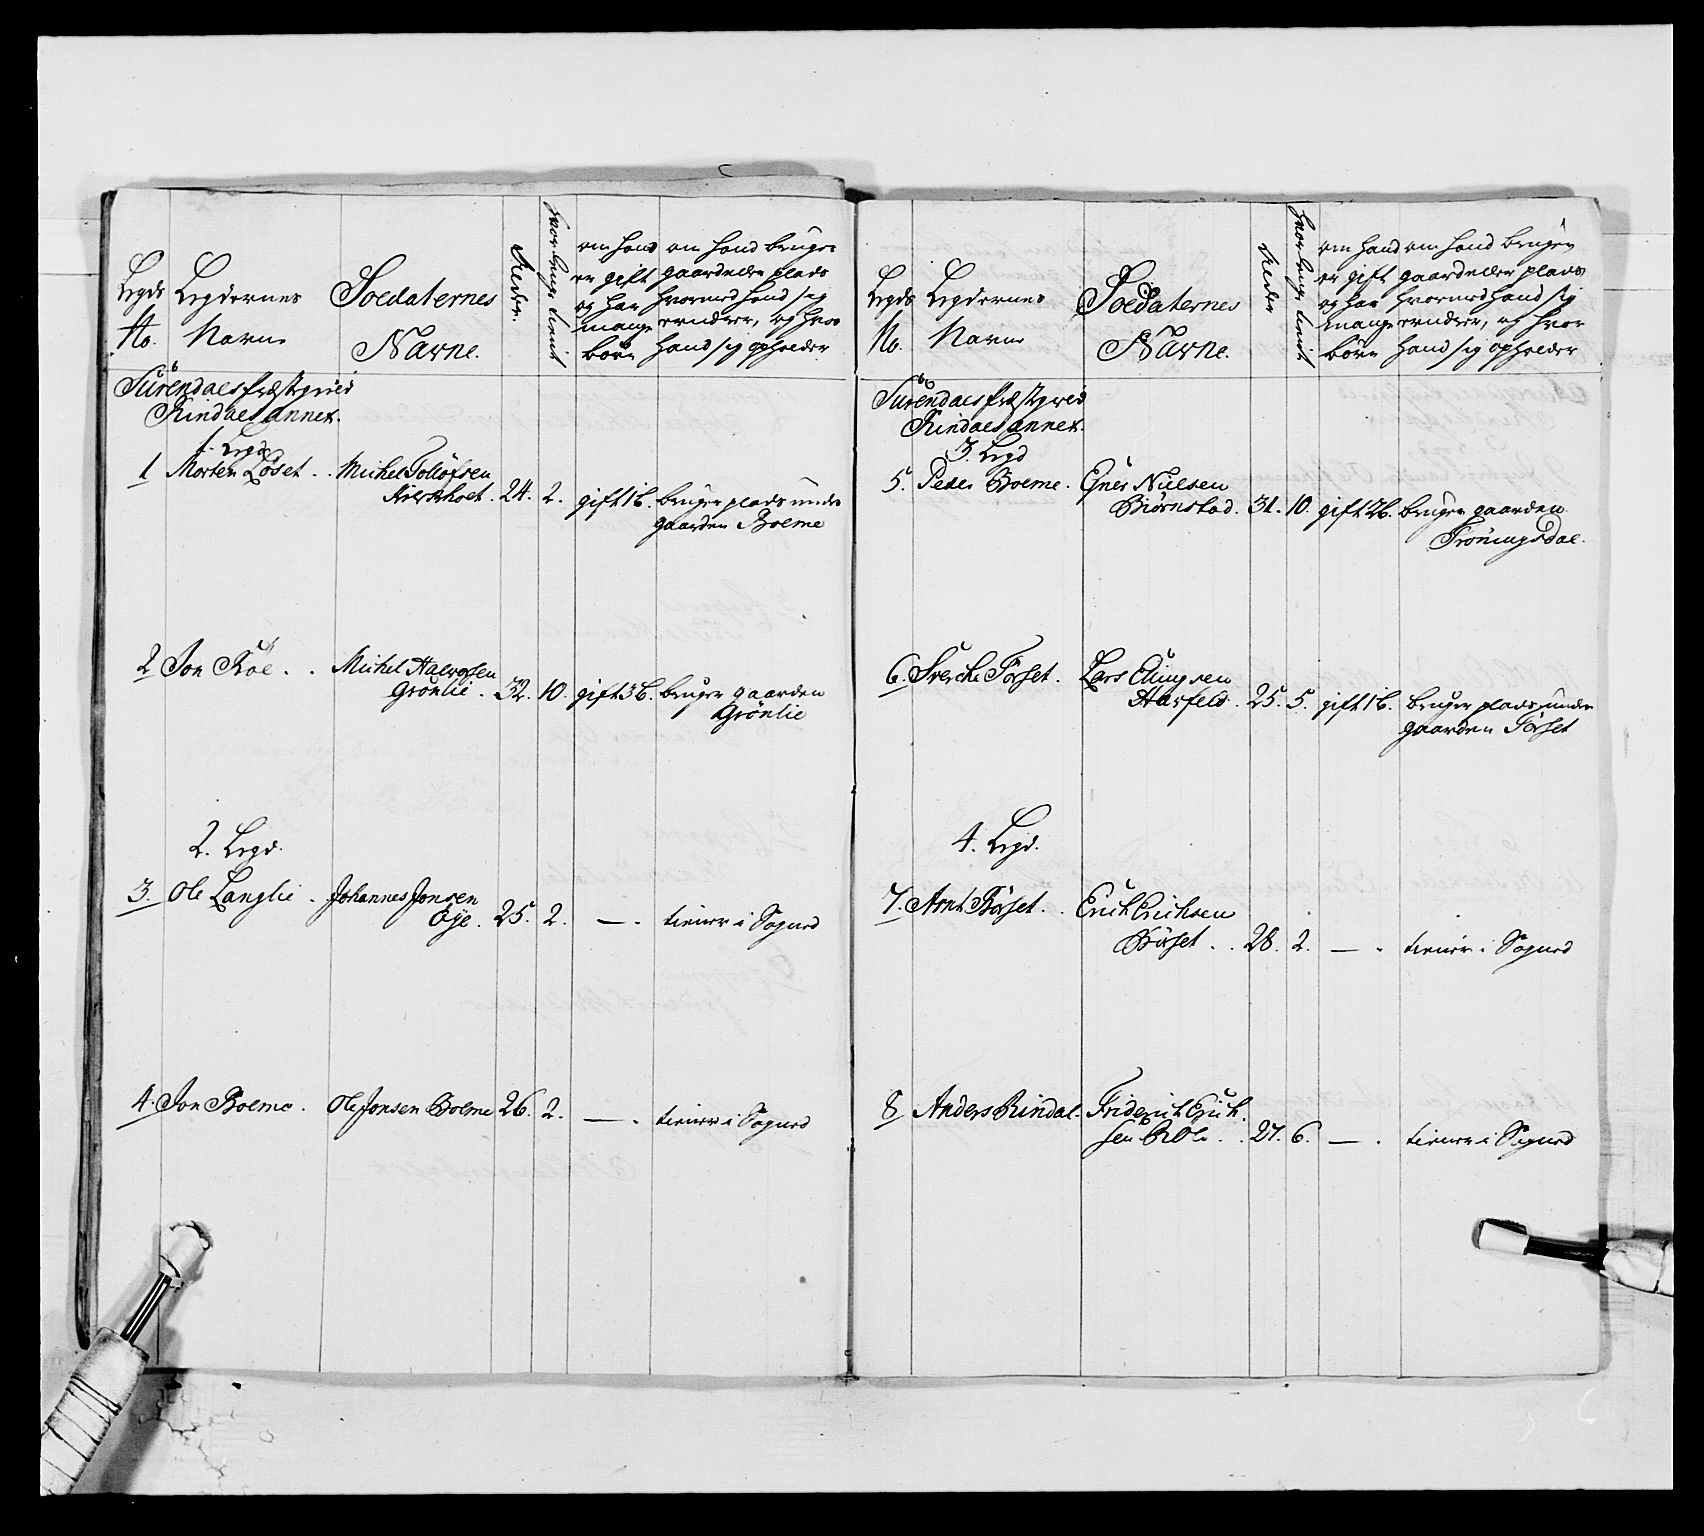 Legds
No.
Legdernes
Navne
Soldaternes
Navne.
Alder.
hvor lenge tient
om hand
er gift
og har
mange
börn
om hand bruger
gaard eller plads
hvormed hand sig
ernærer, og hvor
hand sig opholder
Surendals Præstegield
Rindals annex.
1. Legd
1 Morten Löset . . Michel Tollofsen
24. 2. gift 1 b. bruger plads under
gaarden Bolme
2 Jon Röe . . Michel Halvorsen
Grönlie . 32. 10. gift 3 b. bruger gaarden
Grönlie
2. Legd.
3. Ole Langlie . Johannes Jonsen
Öye . 25. 2. — . tiener i Sogned
4. Jon Bolme . Ole Jonsen Bolme 26. 2. — . tiener i Sogned
Legds
No.
Legdernes
Navne
Soldaternes
Navne.
Alder
hvor lenge tient
om hand
er gift
og har
mange
börn
om hand bruger
gaard eller plads
hvormed hand sig
ernærer, og hvor
hand sig opholder
Surendals Præstegield
Rindals annex.
3. Legd
5. Peder Bolme . Eyner Nielsen
Biörnstad . 31. 10. gift 2 b. bruger gaarden
Tröningsdal.
6. Sverche Törset . Lars Ellingsen
Aarfeld . 25. 5. gift 1 b. bruger plads under
gaarden Törset
4. Legd.
7. Arnt Börset . . Erich Erichsen
Börset . . 28. 2. — . tiener i Sogned
8 Anders Rindal . Friderich Erich-
sen Röe . . 27. 6. — . tiener i Sogned